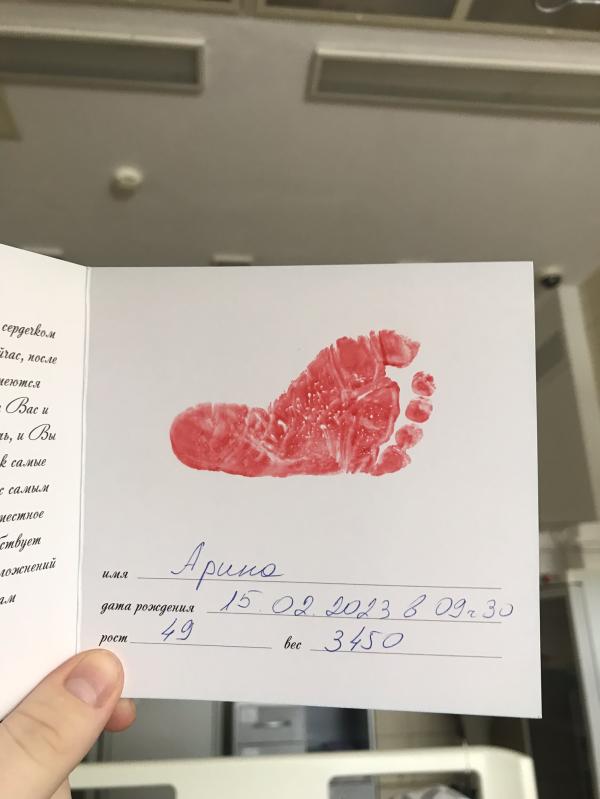 сердечком
йчас, после
меются
Вас и
ь, и Вы
к самые
с самым
местное
бствует
ложнений
ам
имя Арина
дата рождения 15.02.2023 в 09ч30
рост 49 вес 3450